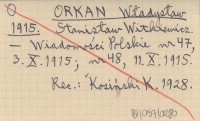 ORKAN Władysław
1915. Stanisław Witkiewicz
— Wiadomości Polskie nr 47,
3. X. 1915; nr 48, 11. X. 1915.
Rec.: Kosiński K. 1928.